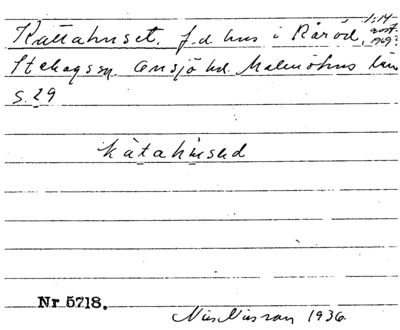 Kattahuset. f.d hus i Röröd, 1:14
Stehagssn. Onsjö hd. Malmöhus län
S. 29
kätahused
Nr 5718.
Nils Nilsson 1936